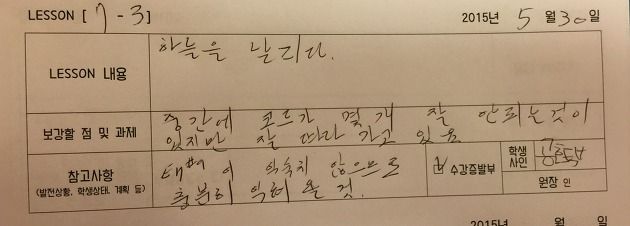 LESSON [ 7-3 ] 2015년 5 월 30 일
LESSON 내용
하늘을 날리다.
보강할 점 및 과제
중간에 코드가 몇 개 잘 안되는것이
있지만 잘 따라 가고 있음
참고사항
(발전상황, 학생상태, 계획 등)
아 익숙치 않으므로
충분히 익혀 올 것.
수강증발부
학생
사인
원장 인
2015년 월 일